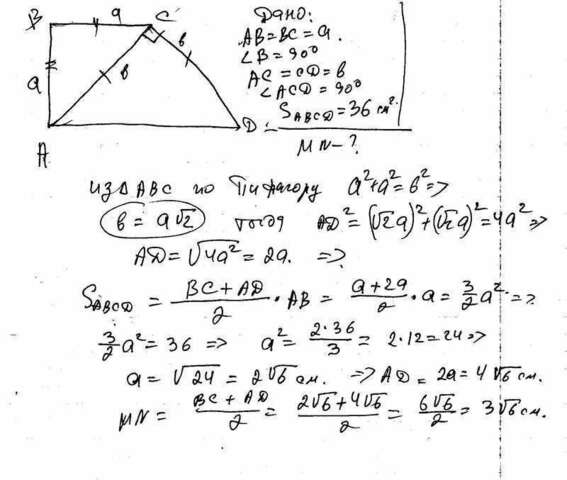 B a C
a b b
A D
Дано:
AB=BC=a.
∠B=90°
AC=CD=b
∠ACD=90°
S_ABCD=36 см².
MN-?
из Δ ABC по Пифагору a²+a²=b² =>
b=a√2 тогда AD²=(√2a)²+(√2a)²=4a² =>
AD=√4a²=2a. =>
S_ABCD = (BC+AD)/2 · AB = (a+2a)/2 · a = 3/2 a² =>
3/2 a²=36 => a²= (2·36)/3 = 2·12=24 =>
a=√24=2√6 см. => AD=2a=4√6 см.
MN= (BC+AD)/2 = (2√6+4√6)/2 = 6√6/2 = 3√6 см.